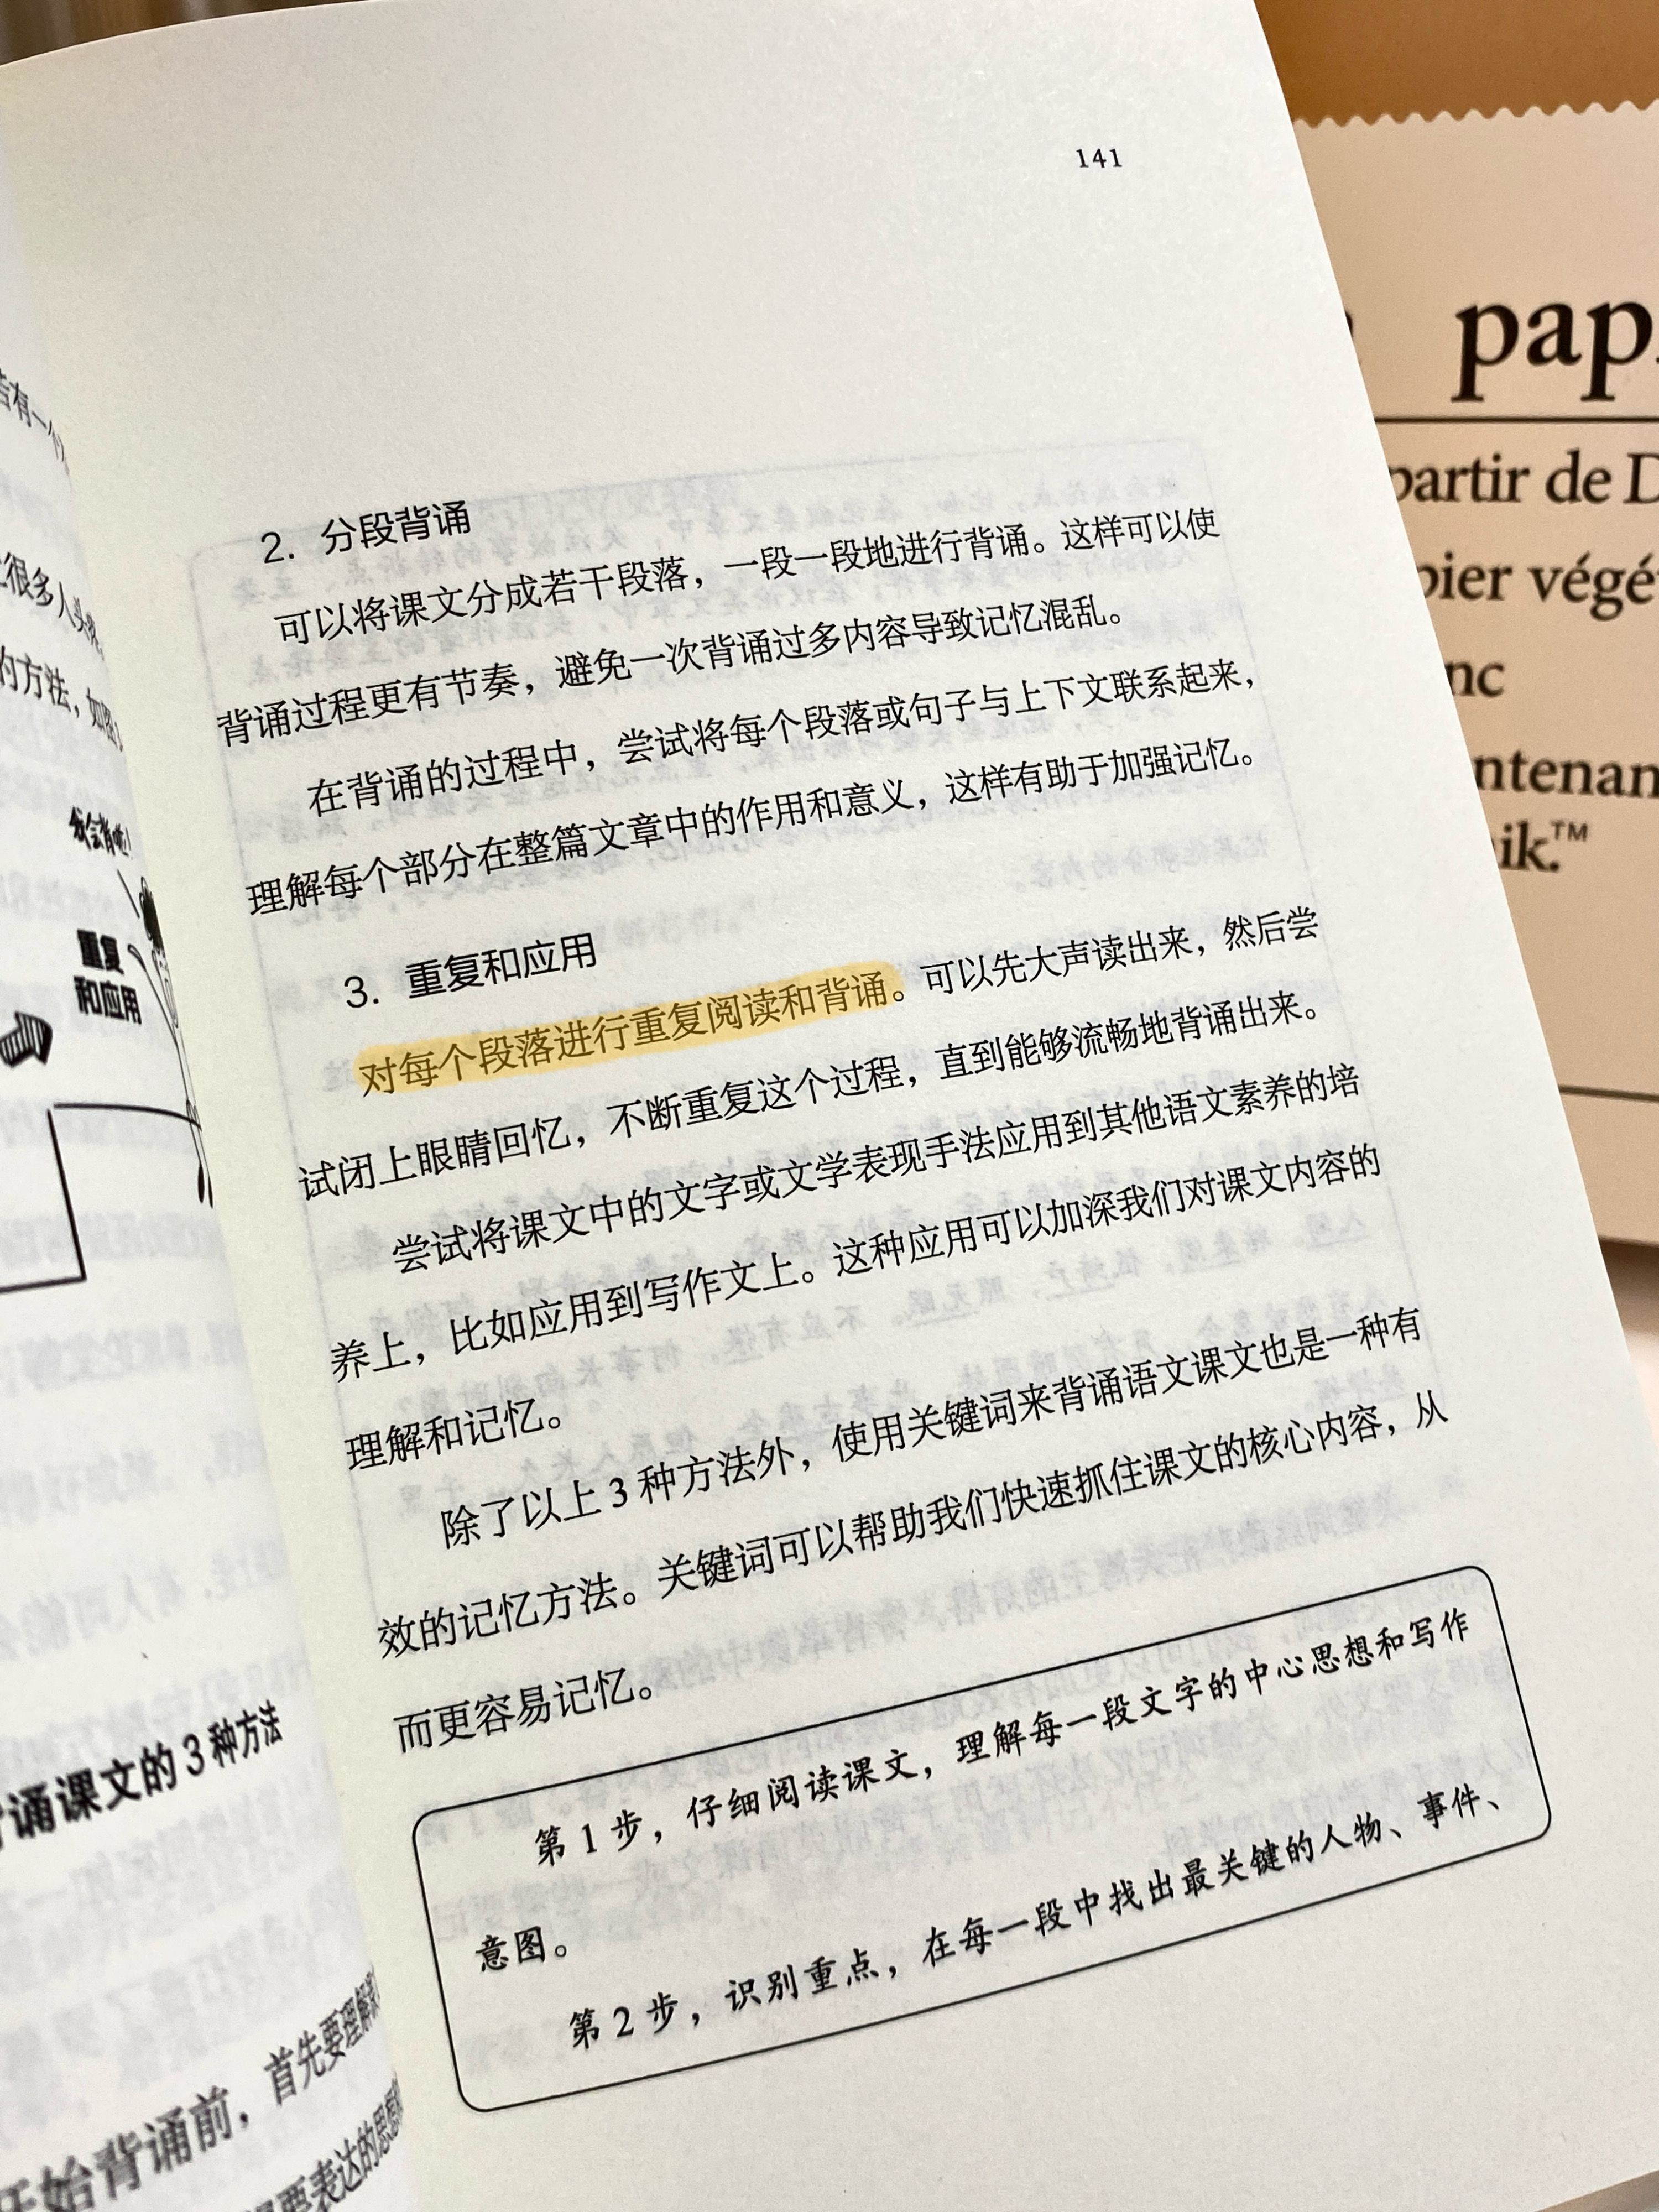 141
2. 分段背诵
可以将课文分成若干段落，一段一段地进行背诵。这样可以使
背诵过程更有节奏，避免一次背诵过多内容导致记忆混乱。
在背诵的过程中，尝试将每个段落或句子与上下文联系起来，
理解每个部分在整篇文章中的作用和意义，这样有助于加强记忆。
3. 重复和应用
对每个段落进行重复阅读和背诵。可以先大声读出来，然后尝
试闭上眼睛回忆，不断重复这个过程，直到能够流畅地背诵出来。
尝试将课文中的文字或文学表现手法应用到其他语文素养的培
养上，比如应用到写作文上。这种应用可以加深我们对课文内容的
理解和记忆。
除了以上3种方法外，使用关键词来背诵语文课文也是一种有
效的记忆方法。关键词可以帮助我们快速抓住课文的核心内容，从
而更容易记忆。
第1步，仔细阅读课文，理解每一段文字的中心思想和写作
意图。
第2步，识别重点，在每一段中找出最关键的人物、事件、
若有一个
很多人头疼
的方法，如图
我会背啦！
重复
和应用
诵课文的3种方法
开始背诵前，首先要理解
要表达的思想
pap
partir de D
pier végé
nc
ntenan
ik.™